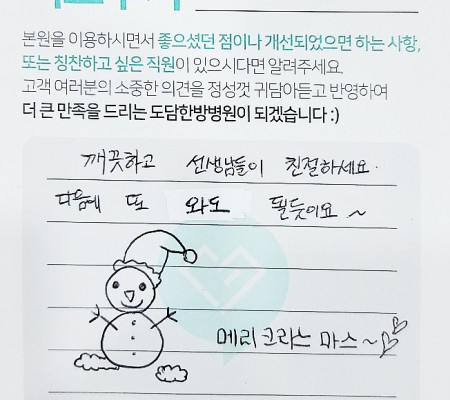 본원을 이용하시면서 좋으셨던 점이나 개선되었으면 하는 사항,
또는 칭찬하고 싶은 직원이 있으시다면 알려주세요.
고객 여러분의 소중한 의견을 정성껏 귀담아듣고 반영하여
더 큰 만족을 드리는 도담한방병원이 되겠습니다 :)
깨끗하고 선생님들이 친절하세요.
다음에 또 와도 될듯이요 ~
메리 크리스 마스 ~